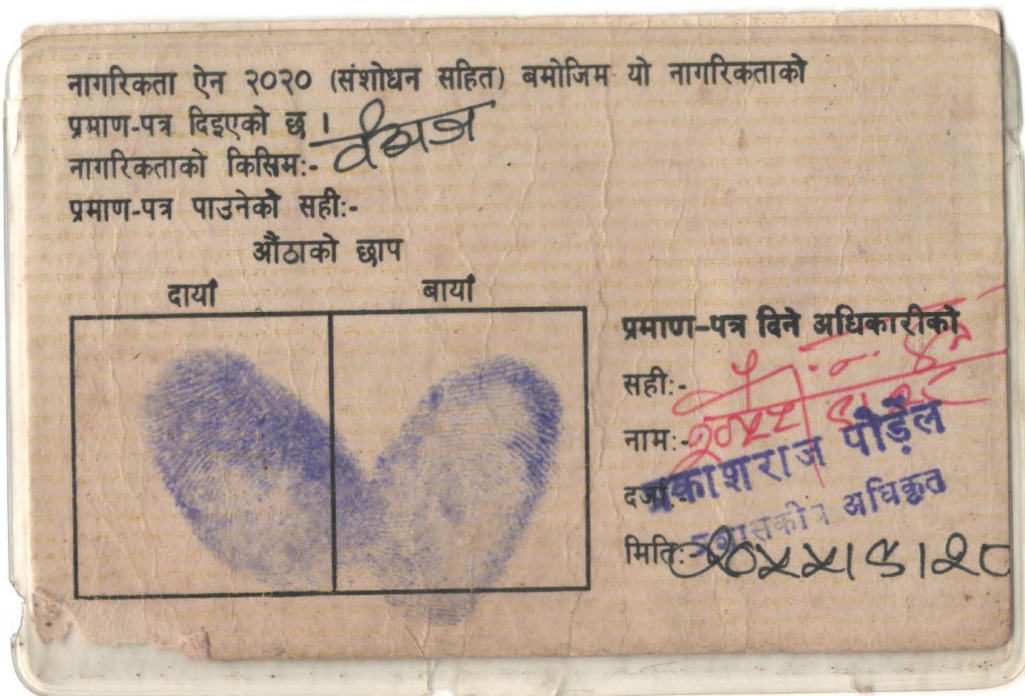 नागरिकता ऐन २०२० (संशोधन सहित) बमोजिम यो नागरिकताको
प्रमाण-पत्र दिइएको छ ।
नागरिकताको किसिम:- वंशज
प्रमाण-पत्र पाउनेको सही:-
औंठाको छाप
दायाँ बायाँ
प्रमाण-पत्र दिने अधिकारीको
सही:-
नाम:- प्रकाशराज पौडेल
दर्जा प्रशासकीय अधिकृत
मिति: